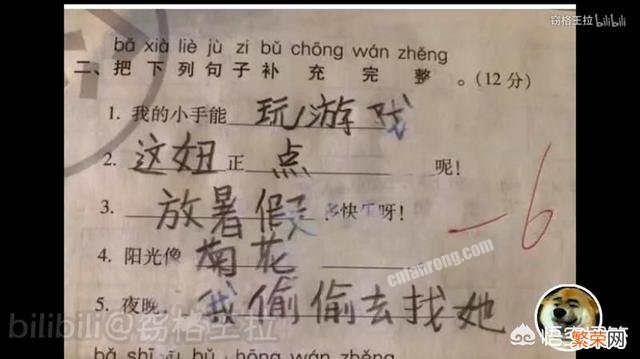 窃格王拉 bilibili
bǎ xià liè jù zi bǔ chōng wán zhěng
二、把下列句子补充完整。(12分)
1. 我的小手能玩游戏
2. 这妞正点呢!
3. 放暑假多快乐呀!
4. 阳光像菊花
5. 夜晚,我偷偷去找她
-6
cnfairong.com
bilibili@窃格王拉
悟空问答
繁荣网
bǎ shī jù bǔ chōng wán zhěng